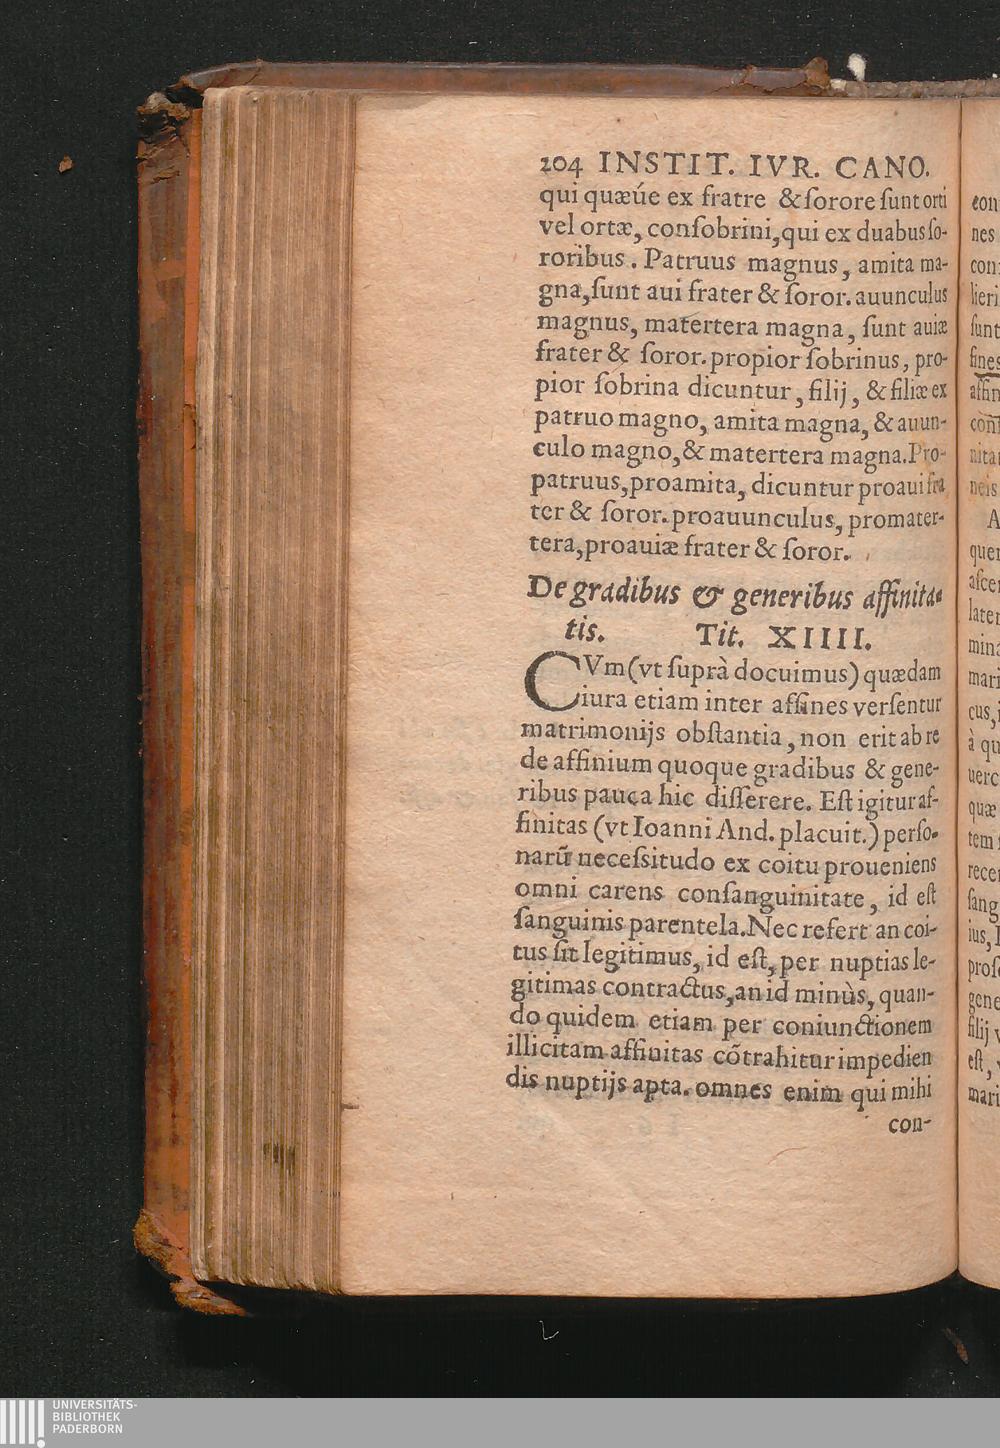 204 INSTIT. IVR. CANO.
qui quæúe ex fratre & ſorore ſunt orti
vel ortæ, conſobrini, qui ex duabus ſo-
roribus. Patruus magnus, amita ma-
gna, ſunt aui frater & ſoror. auunculus
magnus, matertera magna, ſunt auiæ
frater & ſoror. propior ſobrinus, pro-
pior ſobrina dicuntur, filij, & filiæ ex
patruo magno, amita magna, & auun-
culo magno, & matertera magna. Pro-
patruus, proamita, dicuntur proaui fra
ter & ſoror. proauunculus, promater-
tera, proauiæ frater & ſoror.
De gradibus & generibus affinita-
tis. Tit. XIIII.
CVm (vt ſuprà docuimus) quædam
iura etiam inter affines verſentur
matrimonijs obſtantia, non erit ab re
de affinium quoque gradibus & gene-
ribus pauca hic diſſerere. Eſt igitur af-
finitas (vt Ioanni And. placuit.) perſo-
narũ neceſsitudo ex coitu proueniens
omni carens conſanguinitate, id eſt
ſanguinis parentela. Nec refert an coi-
tus ſit legitimus, id eſt, per nuptias le-
gitimas contractus, an id minùs, quan-
do quidem etiam per coniunctionem
illicitam affinitas cõtrahitur impedien
dis nuptijs apta. omnes enim qui mihi
con-
con
nes
con
lieri
ſunt
fines
affin
nita
neis
A
quer
aſcer
later
mina
mari
cus, i
à qu
uerc
quæ
tem
recer
ſang
ius,
proſ
gene
filij
eſt,
mari
UNIVERSITÄTS-
BIBLIOTHEK
PADERBORN